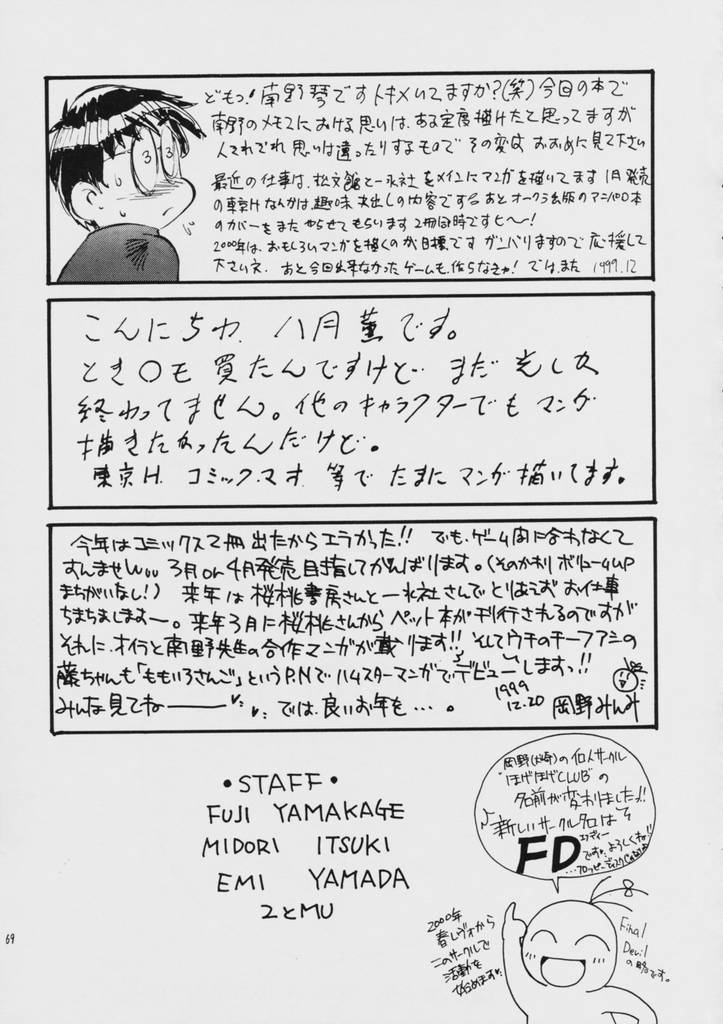 どもっ!南野琴ですトキメいてますか?(笑)今回の本で
南野のメモスにおける思いは、ある程度描けたと思ってますが
人それぞれ思いは違ったりするもので その変は おおめに見て下さい
最近の仕事は、松文館と一水社をメインにマンガを描いてます 1月発売
の東京Hなんかは趣味丸出しの内容でする あと オークラ出版のアニパロ本
のカバーをまた やらせてもらいます 2冊同時ですヒ〜!
2000年は、おもしろいマンガを描くのが目標です ガンバリますので 応援して
下さいネ. あと今回出来なかったゲームも、作らなきゃ! では、また 1999.12
こんにちわ、八月薫です。
とき○モ 買たんですけど… まだ
終わってません。他のキャラクターでも マンガ
描きたかったんだけど。
東京H. コミック・マオ 等で たまに マンガ描いてます。
今年はコミックス2冊 出たからエラかった!! でも、ゲーム間に合わなくて
すんませんし 3月or4月発売目指してがんばります。(そのかわり ボリュームUP
まちがいなし!) 来年は桜桃書房さんと一水社さんでとりあえず お仕事
ちまちましますー。来年3月に桜桃さんから ペット本が刊行されるのですが
それに、オイラと南野先生の合作マンガが載ります!! そしてウチのチーフアシの
藤ちゃんも「ももいろさんご」というP.Nでハムスターマンガでデビューしますっ!!
みんな見てねー では、良いお年を…。
1999
12.20 岡野みんみ
•STAFF•
FUJI YAMAKAGE
MIDORI ITSUKI
EMI YAMADA
2とMU
岡野の個人サークル
"ほげほげCLUB"の
名前が変わりましたっ!!
♪新しいサークル名は
エフディー
FD
です。よろしくね!!
2000年
春レヴォから
このサークルで
活動を
始めます
Final
Devil
の略です。
69